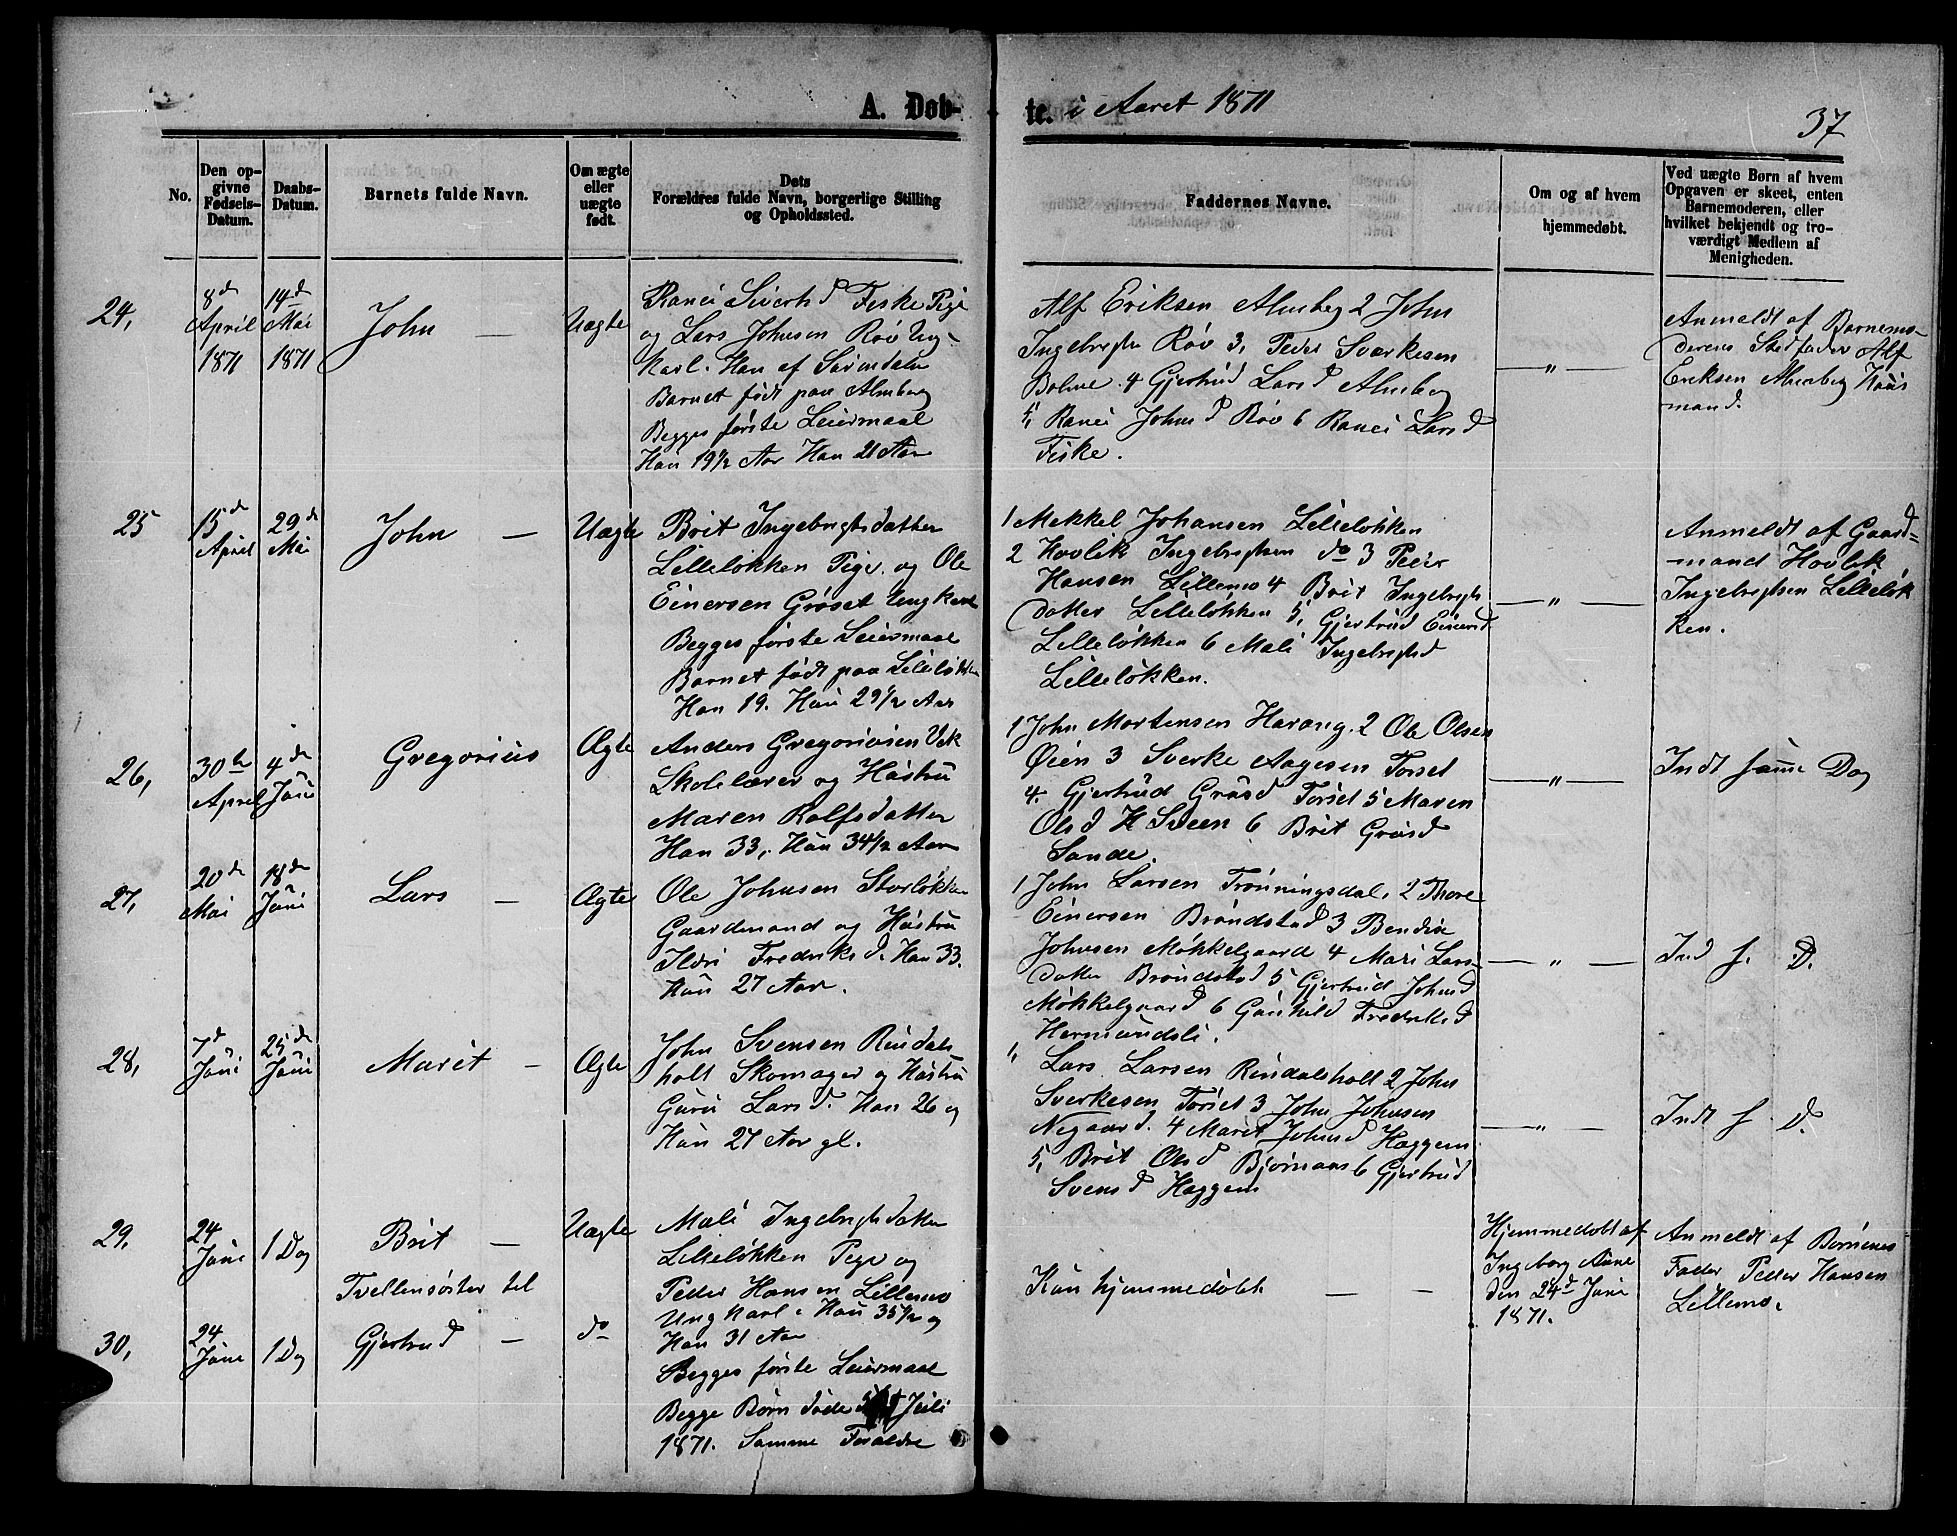 A. Døb-
te. i Aaret 1871
37
No.
Den op-
givne
Fødsels-
Datum.
Daabs-
Datum.
Barnets fulde Navn.
Om ægte
eller
uægte
født.
Dets
Forældres fulde Navn, borgerlige Stilling
og Opholdssted.
Faddernes Navne.
Om og af hvem
hjemmedøbt.
Ved uægte Børn af hvem
Opgaven er skeet, enten
Barnemoderen, eller
hvilket bekjendt og tro-
værdigt Medlem af
Menigheden.
24,
8d
April
1871
14d
Mai
1871
John —
Uægte
Ranei Sivertsd Fiske Pige
og Lars Johnsen Røv Ung-
karl. Han af Surendalen
Barnet født paa Almberg
Begges første Leiermaal
Hun 19½ Aar Han 21 Aar
Alf Eriksen Almberg 2 John
Ingebrigtsen Røv 3, Peder Sværkesen
Bolme 4 Gjertrud Larsd Almberg
5, Ranei Johnsd Røv 6 Ranei Larsd
Fiske.
— „ —
Anmeldt af Barnemo-
derens Stedfader Alf
Eriksen Almberg Huus
mand.
25
15d
April
29d
Mai
John —
Uægte
Brit Ingebrigtsdatter
Lilleløkken Pige. og Ole
Einersen Grøset Ungkarl
Begges første Leiermaal
Barnet født paa Lilleløkken
Han 19. Hun 29½ Aar
1 Mekkel Johansen Lilleløkken
2 Hovlik Ingebrigtsen do 3 Peder
Hansen Lillemo 4 Brit Ingebrigts
datter Lilleløkken 5, Gjertrud Einersd
Lilleløkken 6 Mali Ingebrigtsd
Lilleløkken.
— „ —
Anmeldt af Gaard-
mand Hovlik
Ingebrigtsen Lilleløk
ken.
26,
30te
April
4de
Juni
Gregorius
Ægte
Anders Gregoriusen Vek
Skolelærer og Hustru
Maren Rolfsdatter
Han 33, Hun 34½ Aar
1 John Mortensen Harang. 2 Ole Olsen
Øien 3 Sverke Aagesen Torset
4. Gjertrud Gruesd Torset 5 Maren
Olsd H Sveen 6 Brit Gruesd
Sande.
— „ —
Indt samme Dag
27,
20de
Mai
18de
Juni
Lars —
Ægte
Ole Johnsen Storløkken
Gaardmand og Hustru
Ildri Fredriksd. Han 33.
Hun 27 Aar.
1 John Larsen Trønningsdal, 2 Thore
Einersen Brøndstad 3 Bendix
Johnsen Møkkelgaard 4 Mari Lars-
datter Brøndstad 5 Gjertrud Johnsd
Møkkelgaard 6 Gunhild Fredriksd
Hermundsli.
— „ —
Ind s. D.
28,
7d
Juni
25de
Juni
Marit —
Ægte
John Svensen Rindals
holt Skomager og Hustru
Guru Larsd. Han 26 og
Hun 27 Aar gl.
1, Lars Larsen Rindalsholt 2 John
Sverkesen Torset 3 John Johnsen
Negaard. 4 Marit Johnsd Haggem
5, Brit Olsd Bjørnaas 6 Gjertrud
Svensd Haggem
— „ —
Indt s D.
29.
24
Juni
1 Dag
Brit —
Tvillensøster til
Uægte
Mali Ingebrigtsdatter
Lilleløkken Pige og
Peder Hansen Lillemo
Ungkarl. Hun 35½ og
Han 31 Aar
Begges første Leiermaal
Begge Børn døde Juli
1871. Samme Forældre
Kun hjemmedøbt — —
Hjemmedøbt af
Ingeborg Aune
den 24d Juni
1871.
Anmeldt af Børnenes
Fader Peder Hansen
Lillemo.
30,
24
Juni
1 Dag
Gjertrud —
do